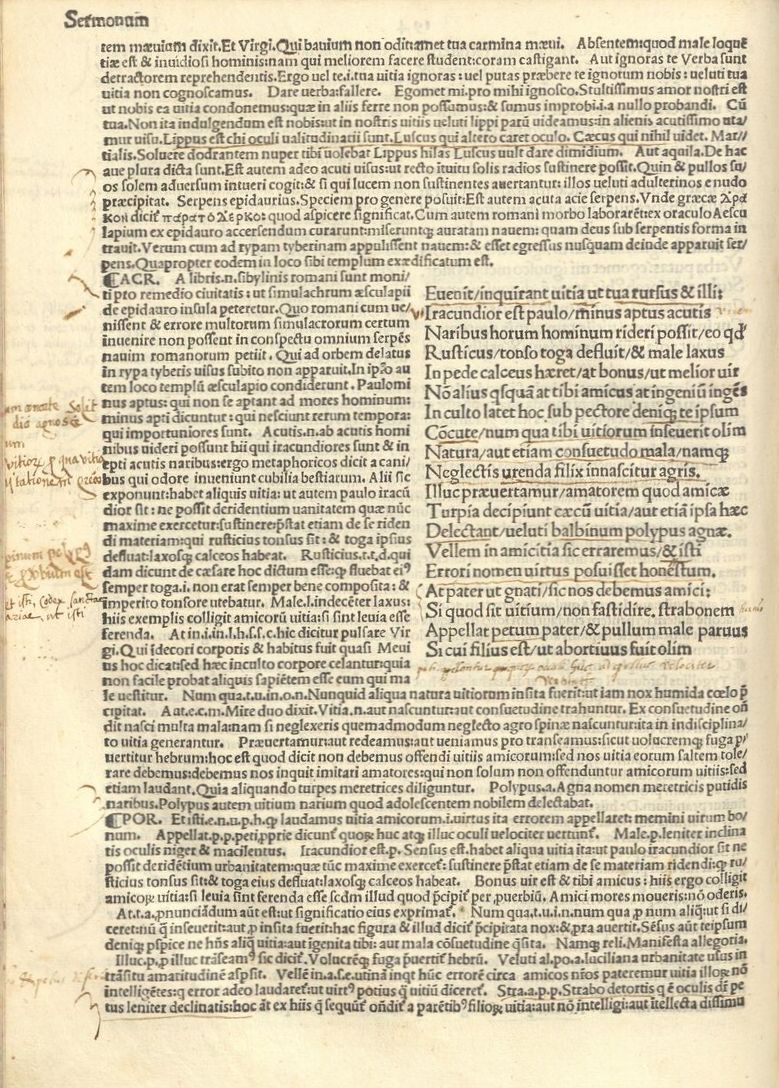 Sermonum
tem mæuium dixit. Et Virgi. Qui bauium non odit: amet tua carmina mæui. Absentem: quod male loquẽ
tiæ est & inuidiosi hominis: nam qui meliorem facere student: coram castigant. Aut ignoras te Verba sunt
detractorem reprehendentis. Ergo uel te. i. tua uitia ignoras: uel putas præbere te ignotum nobis: ueluti tua
uitia non cognoscamus. Dare uerba: fallere. Egomet mi. pro mihi ignosco. Stultissimus amor nostri est
ut nobis ea uitia condonemus: quæ in aliis ferre non possumus: & sumus improbi. i. a nullo probandi. Cũ
tua. Non ita indulgendum est nobis: ut in nostris uitiis ueluti lippi parũ uideamus: in alienis acutissimo uta/
mur uisu. Lippus est cħi oculi ualitudinarii sunt. Luscus qui altero caret oculo. Cæcus qui nihil uidet. Mar/
tialis. Soluere dodrantem nuper tibi uolebat Lippus hilas Luscus uult dare dimidium. Aut aquila. De hac
aue plura dicta sunt. Est autem adeo acuti uisus: ut recto ituitu solis radios sustinere possit. Quin & pullos su/
os solem aduersum intueri cogit: & si qui lucem non sustinentes auertantur: illos ueluti adulterinos e nudo
præcipitat. Serpens epidaurius. Speciem pro genere posuit: Est autem acuta acie serpens. Vnde græcæ Δρα
κον dicit᷑ παρατο Δερκο: quod aspicere significat. Cum autem romani morbo laborarẽt: ex oraculo Aescu
lapium ex epidauro accersendum curarunt: miseruntq; auratam nauem: quam deus sub serpentis forma in
trauit. Verum cum ad rypam tyberinam appulissent nauem: & esset egressus nusquam deinde apparuit ser/
pens. Quapropter eodem in loco sibi templum exædificatum est.
¶ACR. A libris. n. sibylinis romani sunt moni/
ti pro remedio ciuitatis: ut simulachrum æsculapii
de epidauro insula peteretur. Quo romani cum ue/
nissent & errore multorum simulacrorum certum
inuenire non possent in conspectu omnium serpẽs
nauim romanorum petiit. Qui ad orbem delatus
in rypa tyberis uisus subito non apparuit. In ip̃o au
tem loco templũ æsculapio condiderunt. Paulomi
nus aptus: qui non se aptant ad mores hominum:
minus apti dicuntur: qui nesciunt rerum tempora:
qui importuniores sunt. Acutis. n. ab acutis homi
nibus uideri possunt hii qui iracundiores sunt & in
epti acutis naribus: ergo metaphoricos dicit a cani/
bus qui odore inueniunt cubilia bestiarum. Alii sic
exponunt: habet aliquis uitia: ut autem paulo iracũ
dior sit: ne possit deridentium uanitatem quæ nũc
maxime exercetur: sustinere: p̃stat etiam de se riden
di materiam: qui rusticius tonsus sit: & toga ipsius
defluat: laxosq; calceos habeat. Rusticius. t. t. d. qui
dam dicunt de cæsare hoc dictum esse: q; fluebat ei⁹
semper toga. i. non erat semper bene composita: &
imperito tonsore utebatur. Male. l. indecẽter laxus:
hiis exemplis colligit amicorũ uitia: si sint leuia esse
ferenda. At in. i. in. l. h. s. f. c. hic dicitur pulsare Vir
gi. Qui idecori corporis & habitus fuit quasi Meui
us hoc dicat: sed hæc inculto corpore celantur: quia
non facile probat aliquis sapiẽtem esse eum qui ma
le uestitur.
Euenit/inquirant uitia ut tua rursus & illi:
Iracundior est paulo/minus aptus acutis
Naribus horum hominum rideri possit/eo qđ
Rusticus/tonso toga defluit/& male laxus
In pede calceus hæret/at bonus/ut melior uir
Nõ alius qsquã at tibi amicus at ingeniũ ingẽs
In culto latet hoc sub pectore deniq; te ipsum
Cõcute/num qua tibi uitiorum inseuerit olim
Natura/aut etiam consuetudo mala/namq;
Neglectis urenda filix innascitur agris.
Illuc præuertamur/amatorem quod amicæ
Turpia decipiunt cæcũ uitia/aut etiã ipsa hæc
Delectant/ueluti balbinum polypus agnæ.
Vellem in amicitia sic erraremus/& isti
Errori nomen uirtus posuisset honestum.
At pater ut gnati/sic nos debemus amici:
Si quod sit uitium/non fastidire. strabonem
Appellat petum pater/& pullum male paruus
Si cui filius est/ut abortiuus fuit olim
Num qua. t. u. in. o. n. Nunquid aliqua natura uitiorum insita fuerit: ut iam nox humida cœlo p̃
cipitat. Aut. e. c. m. Mire duo dixit. Vitia. n. aut nascuntur: aut consuetudine trahuntur. Ex consuetudine oñ
dit nasci multa mala: nam si neglexeris quemadmodum neglecto agro spinæ nascuntur: ita in indisciplina/
to uitia generantur. Præuertamur: aut redeamus: aut ueniamus pro transeamus: sicut uolucremq; fuga p̱/
uertitur hebrum: hoc est quod dicit non debemus offendi uitiis amicorum: sed nos uitia eorum saltem tole/
rare debemus: debemus nos inquit imitari amatores: qui non solum non offenduntur amicorum uitiis: sed
etiam laudant. Quia aliquando turpes meretrices diliguntur. Polypus. a. Agna nomen meretricis putidis
naribus. Polypus autem uitium narium quod adolescentem nobilem delectabat.
¶POR. Et isti. e. n. u. p. h. q; laudamus uitia amicorum. i. uirtus ita errorem appellaret: memini uirum bo/
num. Appellat. p. p. peti, p̱prie dicunt᷑ quoꝝ huc atq; illuc oculi uelociter uertunt᷑. Male. p. leniter inclina
tis oculis niger & macilentus. Iracundior est. p. Sensus est. habet aliqua uitia ita: ut paulo iracundior sit ne
possit deridẽtium urbanitatem: quæ tũc maxime exercet᷑: sustinere p̃stat etiam de se materiam ridendi: q; ru/
sticius tonsus sit: & toga eius defluat: laxosq; calceos habeat. Bonus uir est & tibi amicus: hiis ergo colligit
amicoꝝ uitia: si leuia sint ferenda esse scđm illud quod p̃cipit᷑ per p̱uerbiũ. Amici mores moueris: nõ oderis.
At. t. a. p̱nunciãdum aũt est: ut significatio eius exprimat᷑. Num qua. t. u. i. n. num qua p̱ num aliq: ut si di/
ceret: nũ q̃ inseuerit: aut p̱ insita fuerit: hac figura & illud dicit᷑ p̃cipitata nox: & p̱ra auertit. Sẽsus aũt teipsum
deniq; p̱spice ne hñs aliq̃ uitia: aut igenita tibi: aut mala cõsuetudine q̃sita. Namq; reli. Manifesta allegoria.
Illuc. p. p illuc trãseam⁹ sic dicit᷑. Volucrẽq; fuga p̱uertit᷑ hebrũ. Veluti al. po. a. luciliana urbanitate usus in
trãsitu amaritudinẽ asp̱sit. Vellẽ in. a. s. e. utinã inqt hũc errorẽ circa amicos nr̃os pateremur uitia illoꝝ nõ
intelligẽtes: q error adeo laudaret᷑: ut uirt⁹ potius q̃ uitiũ diceret᷑. Stra. a. p. p. Strabo detortis q ẽ oculis dr̃ pe
tus leniter declinatis: hoc ãt ex hiis q̃ sequũt᷑ oñdit᷑ a parẽtib⁹ filioꝝ uitia: aut nõ intelligi: aut ĩtellecta dissimu